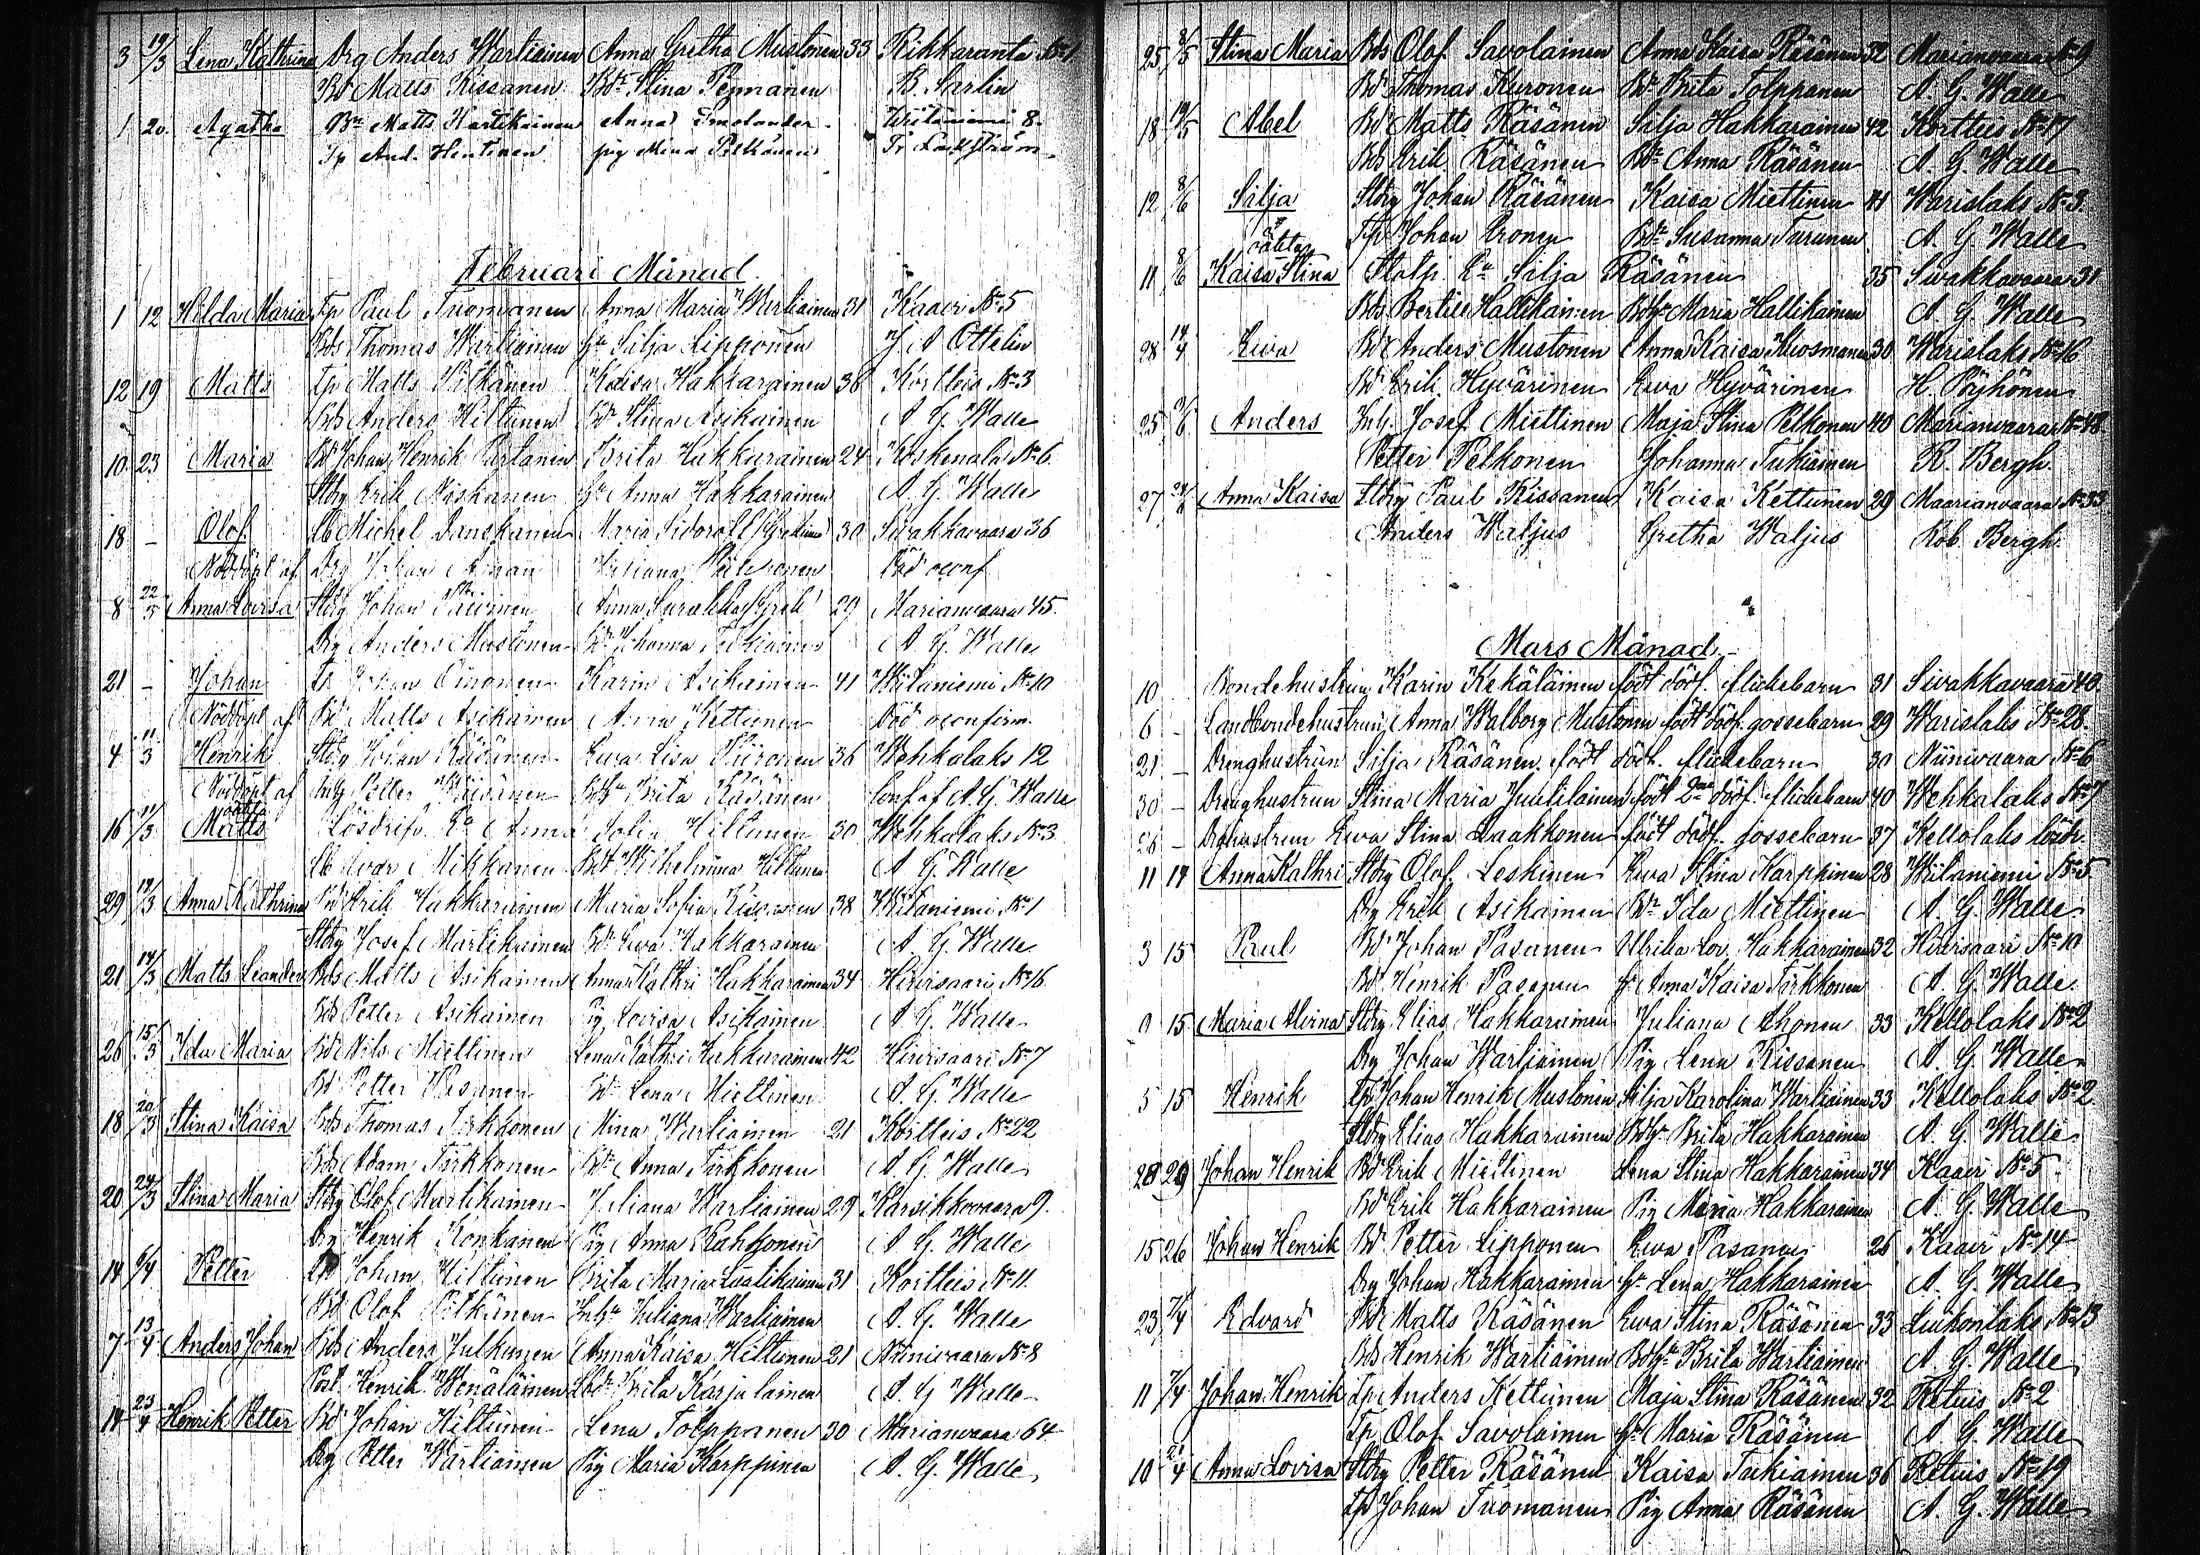 3 19/3 Lena Kathrina Drg Anders Wartiainen Anna Gretha Mustonen 33 Rikkaranta No 1
Bd Matts Kissanen Bdr Stina B. Sarlin
1 20. Agatha Matts Hartikainen Anna Smolander 8.
Tp And. Hintinen pig Mina Pelkonen
Februari Månad.
1 12 Hilda Maria Tp Paul Tuomanen Anna Maria Wartiainen 31 Kaavi No 5
Bds Thomas Wartiainen hu Silja Lipponen J. A Ottelin
12 19 Matts Lp Matts Pitkänen Kaisa Hakkarainen 38 Kortteis No 3
Bds Anders Hiltunen Bdr Stina Asikainen A. G. Walle
10 23 Maria Bd Johan Henrik Partanen Brita Hakkarainen 24 Koskenala No 6.
Stdrg Erik Niskanen hu Anna Hakkarainen A. G. Walle
18 - Olof Lb Michel Danskanen Maria Sidoroff 30 Siwakkavaara 36
Nöddöpt af Drg Johan Död oconf
8 22/3 Anna Lovisa Stdrg Johan 29 Marianvaara 45.
Drg Anders Mustonen Bdr Johanna Tukiainen A. G. Walle
21 - Johan Johan Oinonen Karin Asikainen 41 Wiitaniemi No 10
Nöddöpt af Bd Matts Asikainen Anna Kettunen Död oconfirm.
4 11/3 Henrik Stdrg Johan Räsänen Ewa Lisa Piironen 36 Wehkalaks 12
Nöddöpt af Inh Petter Räisänen Bdhu Brita Räsänen Conf af A. G. Walle
16 11/3 oäkta Matts Lösdrifv. Ka Anna Sofia Hiltunen 30 Wehkalaks No 3
Lb Iwar Mikkanen Bdr Wilhelmina Hiltunen A. G. Walle
29 14/3 Anna Kathrina Bd Erik Hakkarainen Maria Sofia 38 Wiitaniemi No 1
Stdrg Josef Martikainen Bdr Ewa Hakkarainen A. G. Walle
21 14/3 Matts Leander Bds Matts Asikainen Anna Kathri Hakkarainen 34 Hirvisaari No 16.
Bds Petter Asikainen Pig Lovisa Asikainen A. G. Walle
26 15/3 Ida Maria Bd Nils Miettinen Lena Kathri Hakkarainen 42 Hirvisaari No 7
Bd Petter Pasanen Bdr Lena Miettinen A. G. Walle
18 20/3 Stina Kaisa Bds Thomas Tirkkonen Mina Wartiainen 21 Kortteis No 22
Bds Adam Tirkkonen Bdr Anna Tirkkonen A. G. Walle
20 24/3 Stina Maria Stdrg Olof Martikainen Juliana Wartiainen 29 Karsikkovaara 9.
Drg Henrik Konkanen Pig Anna Rahkonen A. G. Walle
14 6/4 Petter Johan Hiltunen Brita Maria 31 Kortteis No 11.
Bd Olof Pitkänen Inhu Juliana Wartiainen A. G. Walle
7 13/4 Anders Johan Bds Anders Julkunen Anna Kaisa Hiltunen 21 Niinivaara No 8
Henrik Wenäläinen Brita Karjalainen A. G Walle
14 23/4 Henrik Petter Bd Johan Hiltunen Lena Tolppanen 30 Marianvaara 64
Drg Petter Wartiainen Pig Maria Karppinen A. G. Walle
25 8/5 Stina Maria Bds Olof Savolainen Anna Kaisa Räsänen 32 Marianvaara No 9
Bd Thomas Kuronen Bdr Brita Tolppanen A. G. Walle
18 14/5 Abel Bd Matts Räsänen Silja Hakkarainen 42 Kortteis No 17
Bds Erik Räsänen Bdr Anna Räsänen A. G. Walle
12 8/6 Silja Stdrg Johan Räsänen Kaisa Miettinen 41 Warislaks No 3.
Tp Johan Eronen Bdr Susanna Turunen A. G. Walle
11 8/6 oäkta Kaisa Stina Silja Räsänen 35 Siwakkavaara 31
Bds Bertill Hallikainen Bdhu Maria Hallikainen A. G. Walle
28 14/4 Ewa Bd Anders Mustonen Anna Kaisa Kuosmanen 30 Warislaks No 16
Bd Erik Hyvärinen Ewa Hyvärinen H. Pöyhönen
25 Anders Inh. Josef Miettinen Maja Stina Pelkonen 40 Marianvaara No 48
Petter Pelkonen Johanna Tukiainen R. Bergh.
27 Anna Kaisa Stdrg Paul Kissanen Kaisa Kettunen 29 Maarianvaara No 33
Anders Waljus Gretha Waljus Rob. Bergh.
Mars Månad.
10 - Bondehustrun Karin Kekäläinen födt dödf. flickebarn 31 Siwakkavaara 40.
6 - Landbondehustrun Anna Walborg Mustonen födt dödf. gossebarn 29 Warislaks No 28.
21 - Drenghustrun Silja Räsänen födt dödf. flickebarn 30 Niinivaara No 6
30 - Drenghustrun Stina Maria Juutilainen födt 2ne dödf. flickebarn 40 Wehkalaks No 7
26 - Drghustrun Ewa Stina Laakkonen födt dödf. gossebarn 37 Kellolaks
11 14 Anna Kathri Stdrg Olof Leskinen Ewa Stina Karppinen 28 Wiitaniemi No 5
Drg Erik Asikainen Bdr Ida Miettinen A. G. Walle
3 15 Paul Bd Johan Pasanen Ulrika Lov. Hakkarainen 32 Hirvisaari No 10
Bd Henrik Pasanen hu Anna Kaisa Tirkkonen A. G. Walle
9 15 Maria Alvina Stdrg Elias Hakkarainen Juliana Ahonen 33 Kellolaks No 2
Drg Johan Wartiainen Pig Lena Kissanen A. G. Walle
5 15 Henrik Lp Johan Henrik Mustonen Silja Karolina Wartiainen 33 Kellolaks No 2
Stdrg Elias Hakkarainen Bdhu Brita Hakkarainen A. G. Walle
28 29 Johan Henrik Bd Erik Miettinen Lena Stina Hakkarainen 34 Kaavi No 5
Bd Erik Hakkarainen Pig Maria Hakkarainen A. G. Walle
15 26 Johan Henrik Bd Petter Lipponen Ewa Pasanen 26 Kaavi No 14
Drg Johan Hakkarainen hu Lena Hakkarainen A. G. Walle
23 7/4 Edvard Bd Matts Räsänen Ewa Stina Räsänen 33 Luikonlaks No 13
Bds Henrik Wartiainen Bdhu Brita Wartiainen A. G. Walle
11 7/4 Johan Henrik Lp Anders Kettunen Maja Stina Räsänen 32 Retuis No 2
Tp Olof Savolainen hu Maria Räsänen A. G. Walle
10 21/4 Anna Lovisa Stdrg Petter Räsänen Kaisa Tukiainen 36 Retuis No 19
Lp Johan Tuomanen Pig Anna Räsänen A. G. Walle